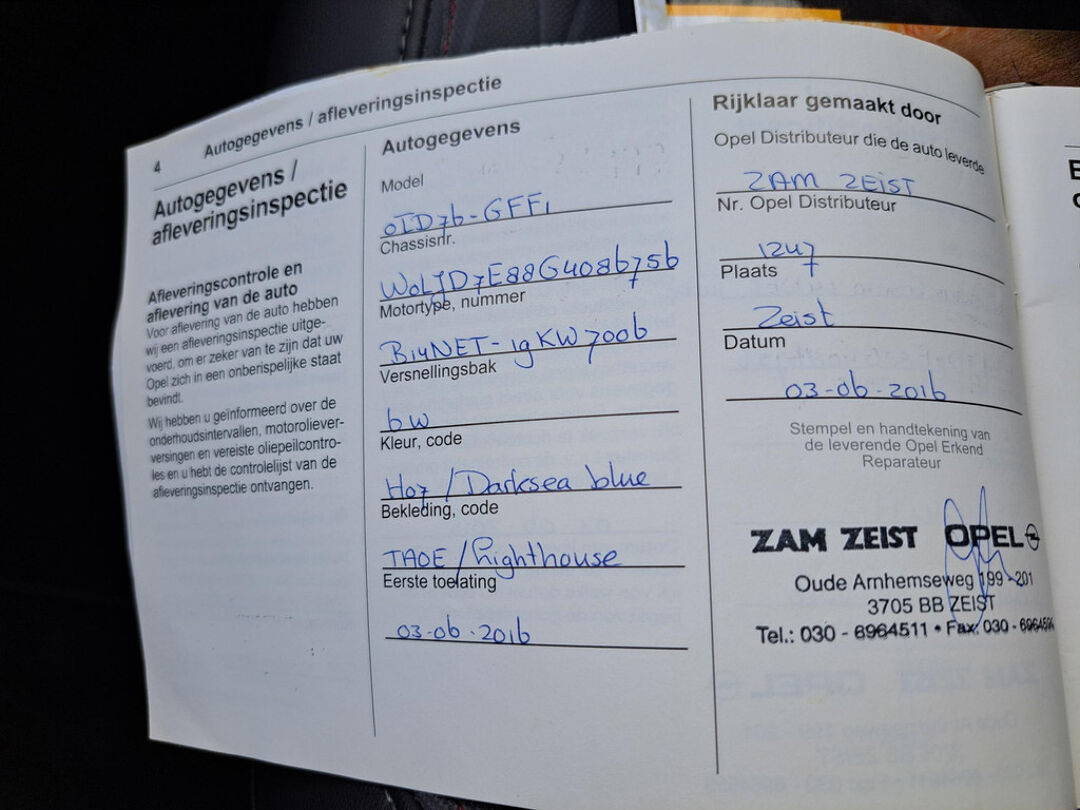 4
Autogegevens / afleveringsinspectie
Autogegevens /
afleveringsinspectie
Afleveringscontrole en
aflevering van de auto
Voor aflevering van de auto hebben
wij een afleveringsinspectie uitge-
voerd, om er zeker van te zijn dat uw
Opel zich in een onberispelijke staat
bevindt.
Wij hebben u geïnformeerd over de
onderhoudsintervallen, motoroliever-
versingen en vereiste oliepeilcontro-
les en u hebt de controlelijst van de
afleveringsinspectie ontvangen.
Autogegevens
Model
0ID76-GFF1
Chassisnr.
W0LJD7E88G4086756
Motortype, nummer
B14NET-19KW7006
Versnellingsbak
6W
Kleur, code
H07 / Darksea blue
Bekleding, code
TAOE / Lighthouse
Eerste toelating
03-06-2016
Rijklaar gemaakt door
Opel Distributeur die de auto leverde
ZAM ZEIST
Nr. Opel Distributeur
1247
Plaats
Zeist
Datum
03-06-2016
Stempel en handtekening van
de leverende Opel Erkend
Reparateur
ZAM ZEIST OPEL
Oude Arnhemseweg 199-201
3705 BB ZEIST
Tel.: 030 - 6964511 • Fax: 030 -